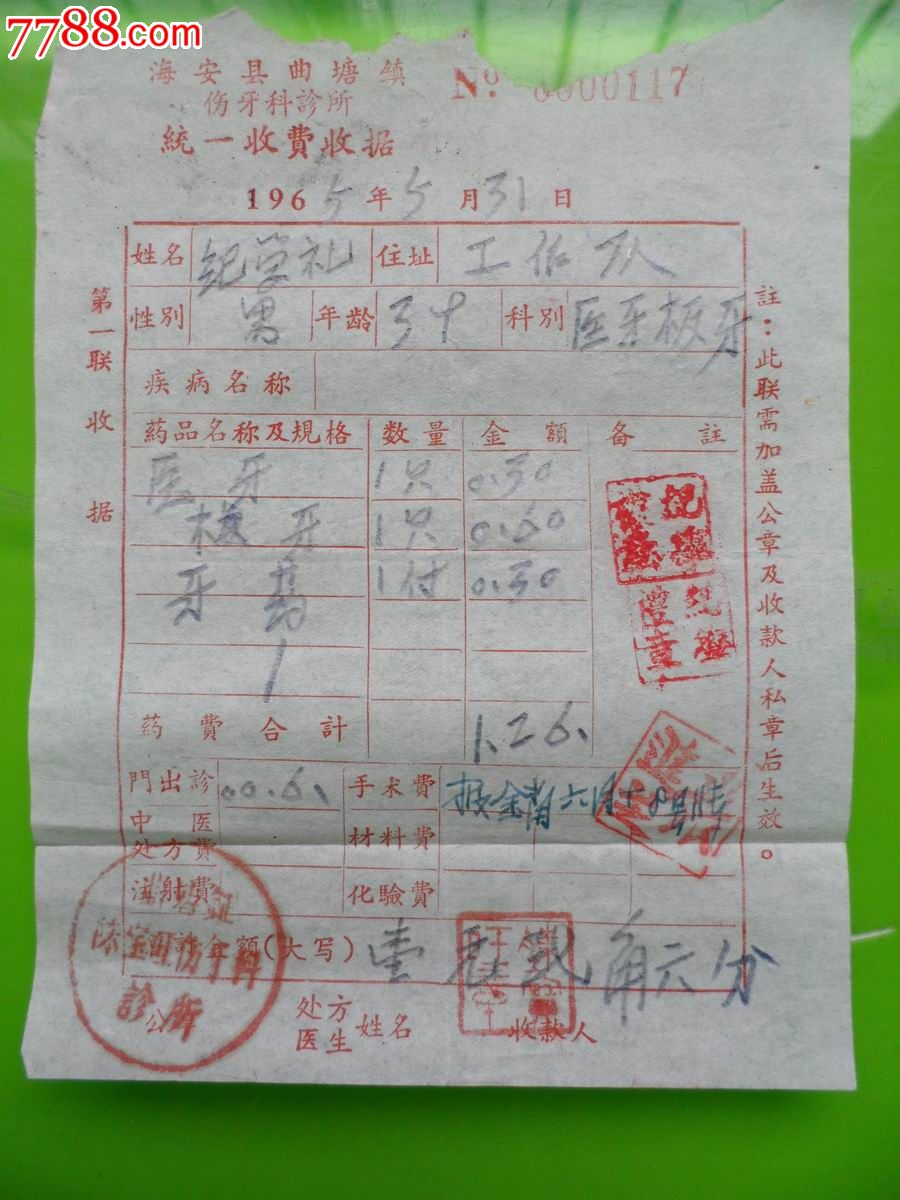 7788.com
海安县曲塘镇
伤牙科診所
No. 0000117
統一收費收据
1965年5月31日
姓名 纪学礼 住址 工作队
性别 男 年龄 39 科别 医牙板牙
疾病名称
药品名称及規格 数量 金額 备註
医牙 1只 0.30
板牙 1只 0.60
牙药 1付 0.30
药費合計 1.26
門出診 00.6 手术費
中医处方費 材料費
注射費 化驗費
計金額(大写) 壹元贰角六分
公 处方医生姓名 收款人
第一联收据
註:此联需加盖公章及收款人私章后生效。
診所